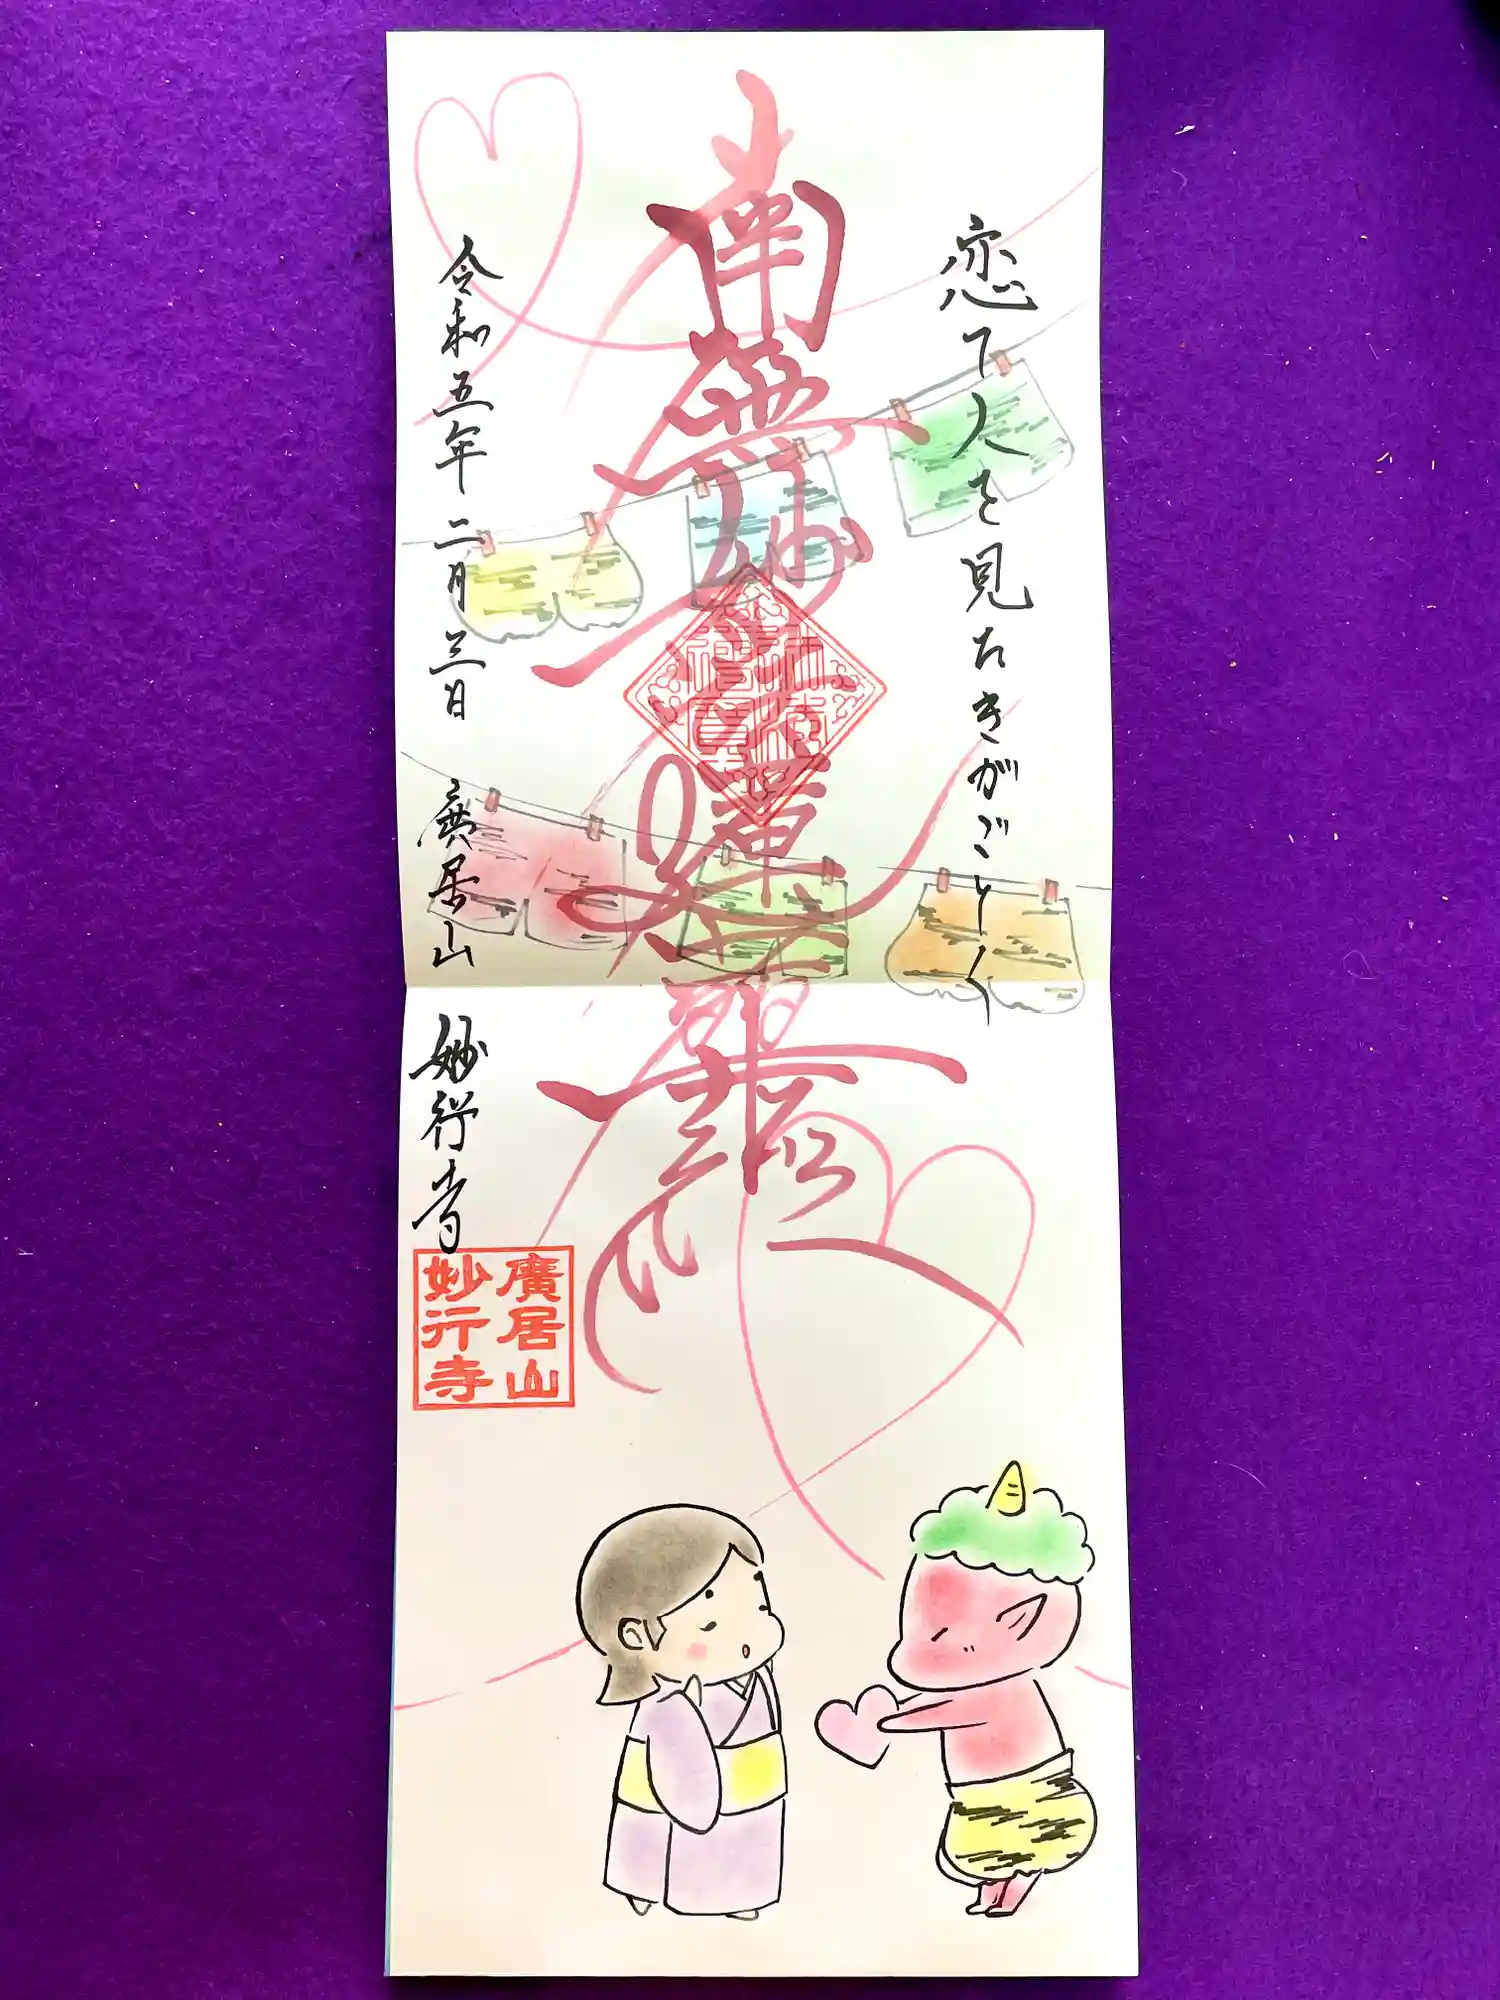 恋て人を見たきがごとく
南無妙法蓮華経
令和五年 二月 三日 廣居山 妙行寺
廣居山
妙行寺